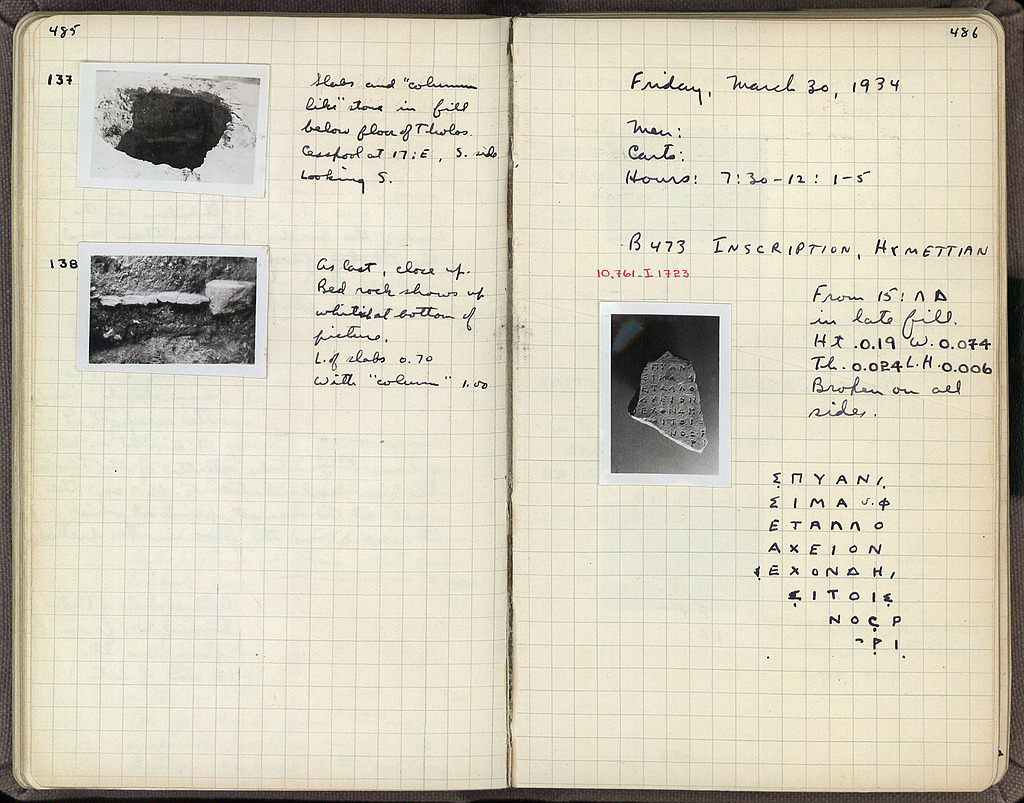 485
137
Slabs and "column
like" stone in fill
below floor of Tholos.
Cesspool at 17:E, S. side
Looking S.
138
As last, close up.
Bed rock shows up
white at bottom of
picture.
L. of slabs 0.70
With "column" 1.00
486
Friday, March 30, 1934
Men:
Carts:
Hours: 7:30-12: 1-5
B 473 INSCRIPTION, HYMETTIAN
10,761-I 1723
From 15:ΛΔ
in late fill.
Ht .0.19 W. 0.074
Th. 0.024 L.H. 0.006
Broken on all
sides.
ΣΠΥΑΝΙ
ΣΙΜΑ υ. Φ
ΕΤΑΛΛΟ
ΑΧΕΙΟΝ
ΕΧΟΝΔΗΙ
ΣΙΤΟΙΣ
ΝΟΣΡ
ΡΙ